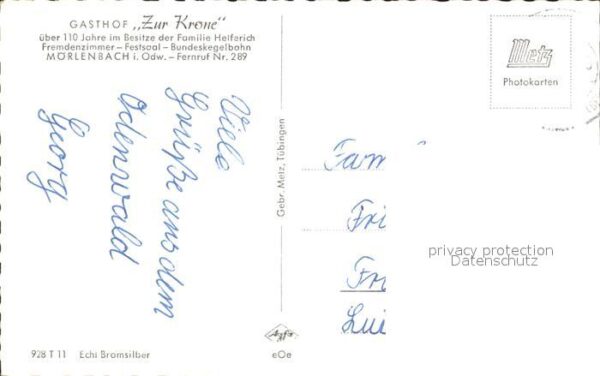 GASTHOF „Zur Krone"
über 110 Jahre im Besitze der Familie Helferich
Fremdenzimmer – Festsaal – Bundeskegelbahn
MÖRLENBACH i. Odw. – Fernruf Nr. 289
Viele
Grüße aus dem
Odenwald
Georg
Gebr. Metz, Tübingen
Metz
Photokarten
Fam
Fri
privacy protection
Datenschutz
Fr
Lui
928 T 11 Echt Bromsilber
Agfa
eOe